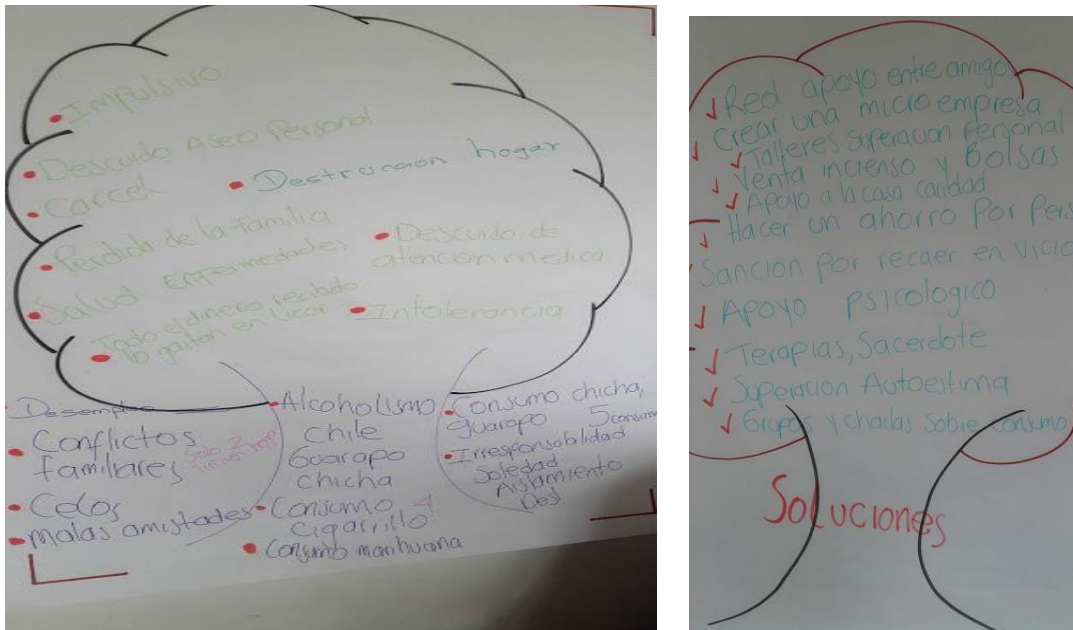 • Impulsivo
• Descuido Aseo Personal
• Carcel
• Destruccion hogar
• Perdida de la Familia
• Salud Enfermedades
• Descuido de
atencion medica
• Todo el dinero recibido
lo gastan en licor
• Intolerancia
• Desempleo
• Conflictos
familiares
Solo 2
• Celos
• Malas amistades
• Alcoholismo
Chile
Guarapo
chicha
• Consumo 4
Cigarrillo
• Consumo marihuana
• Consumo chicha,
guarapo 5 consum
• Irresponsabilidad
Soledad
Aislamiento
Des
Red apoyo entre amigo
Crear una micro empresa
Talleres Superacion Personal
Venta incienso y Bolsas
Apoyo a la casa caridad
Hacer un ahorro Por Pers
Sancion por recaer en vicio
Apoyo psicologico
Terapias, Sacerdote
Superacion Autoestima
Grupos y charlas sobre consumo
Soluciones